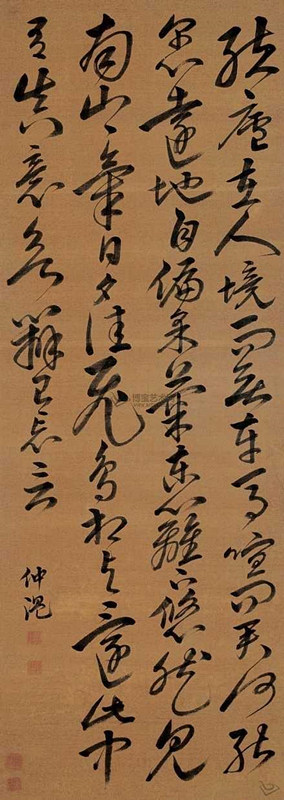 結廬在人境而無車馬喧問君何能
爾心遠地自偏采菊東籬下悠然見
南山〻氣日夕佳飛鳥相與還此中
有真意欲辨已忘言
仲
博宝艺术网